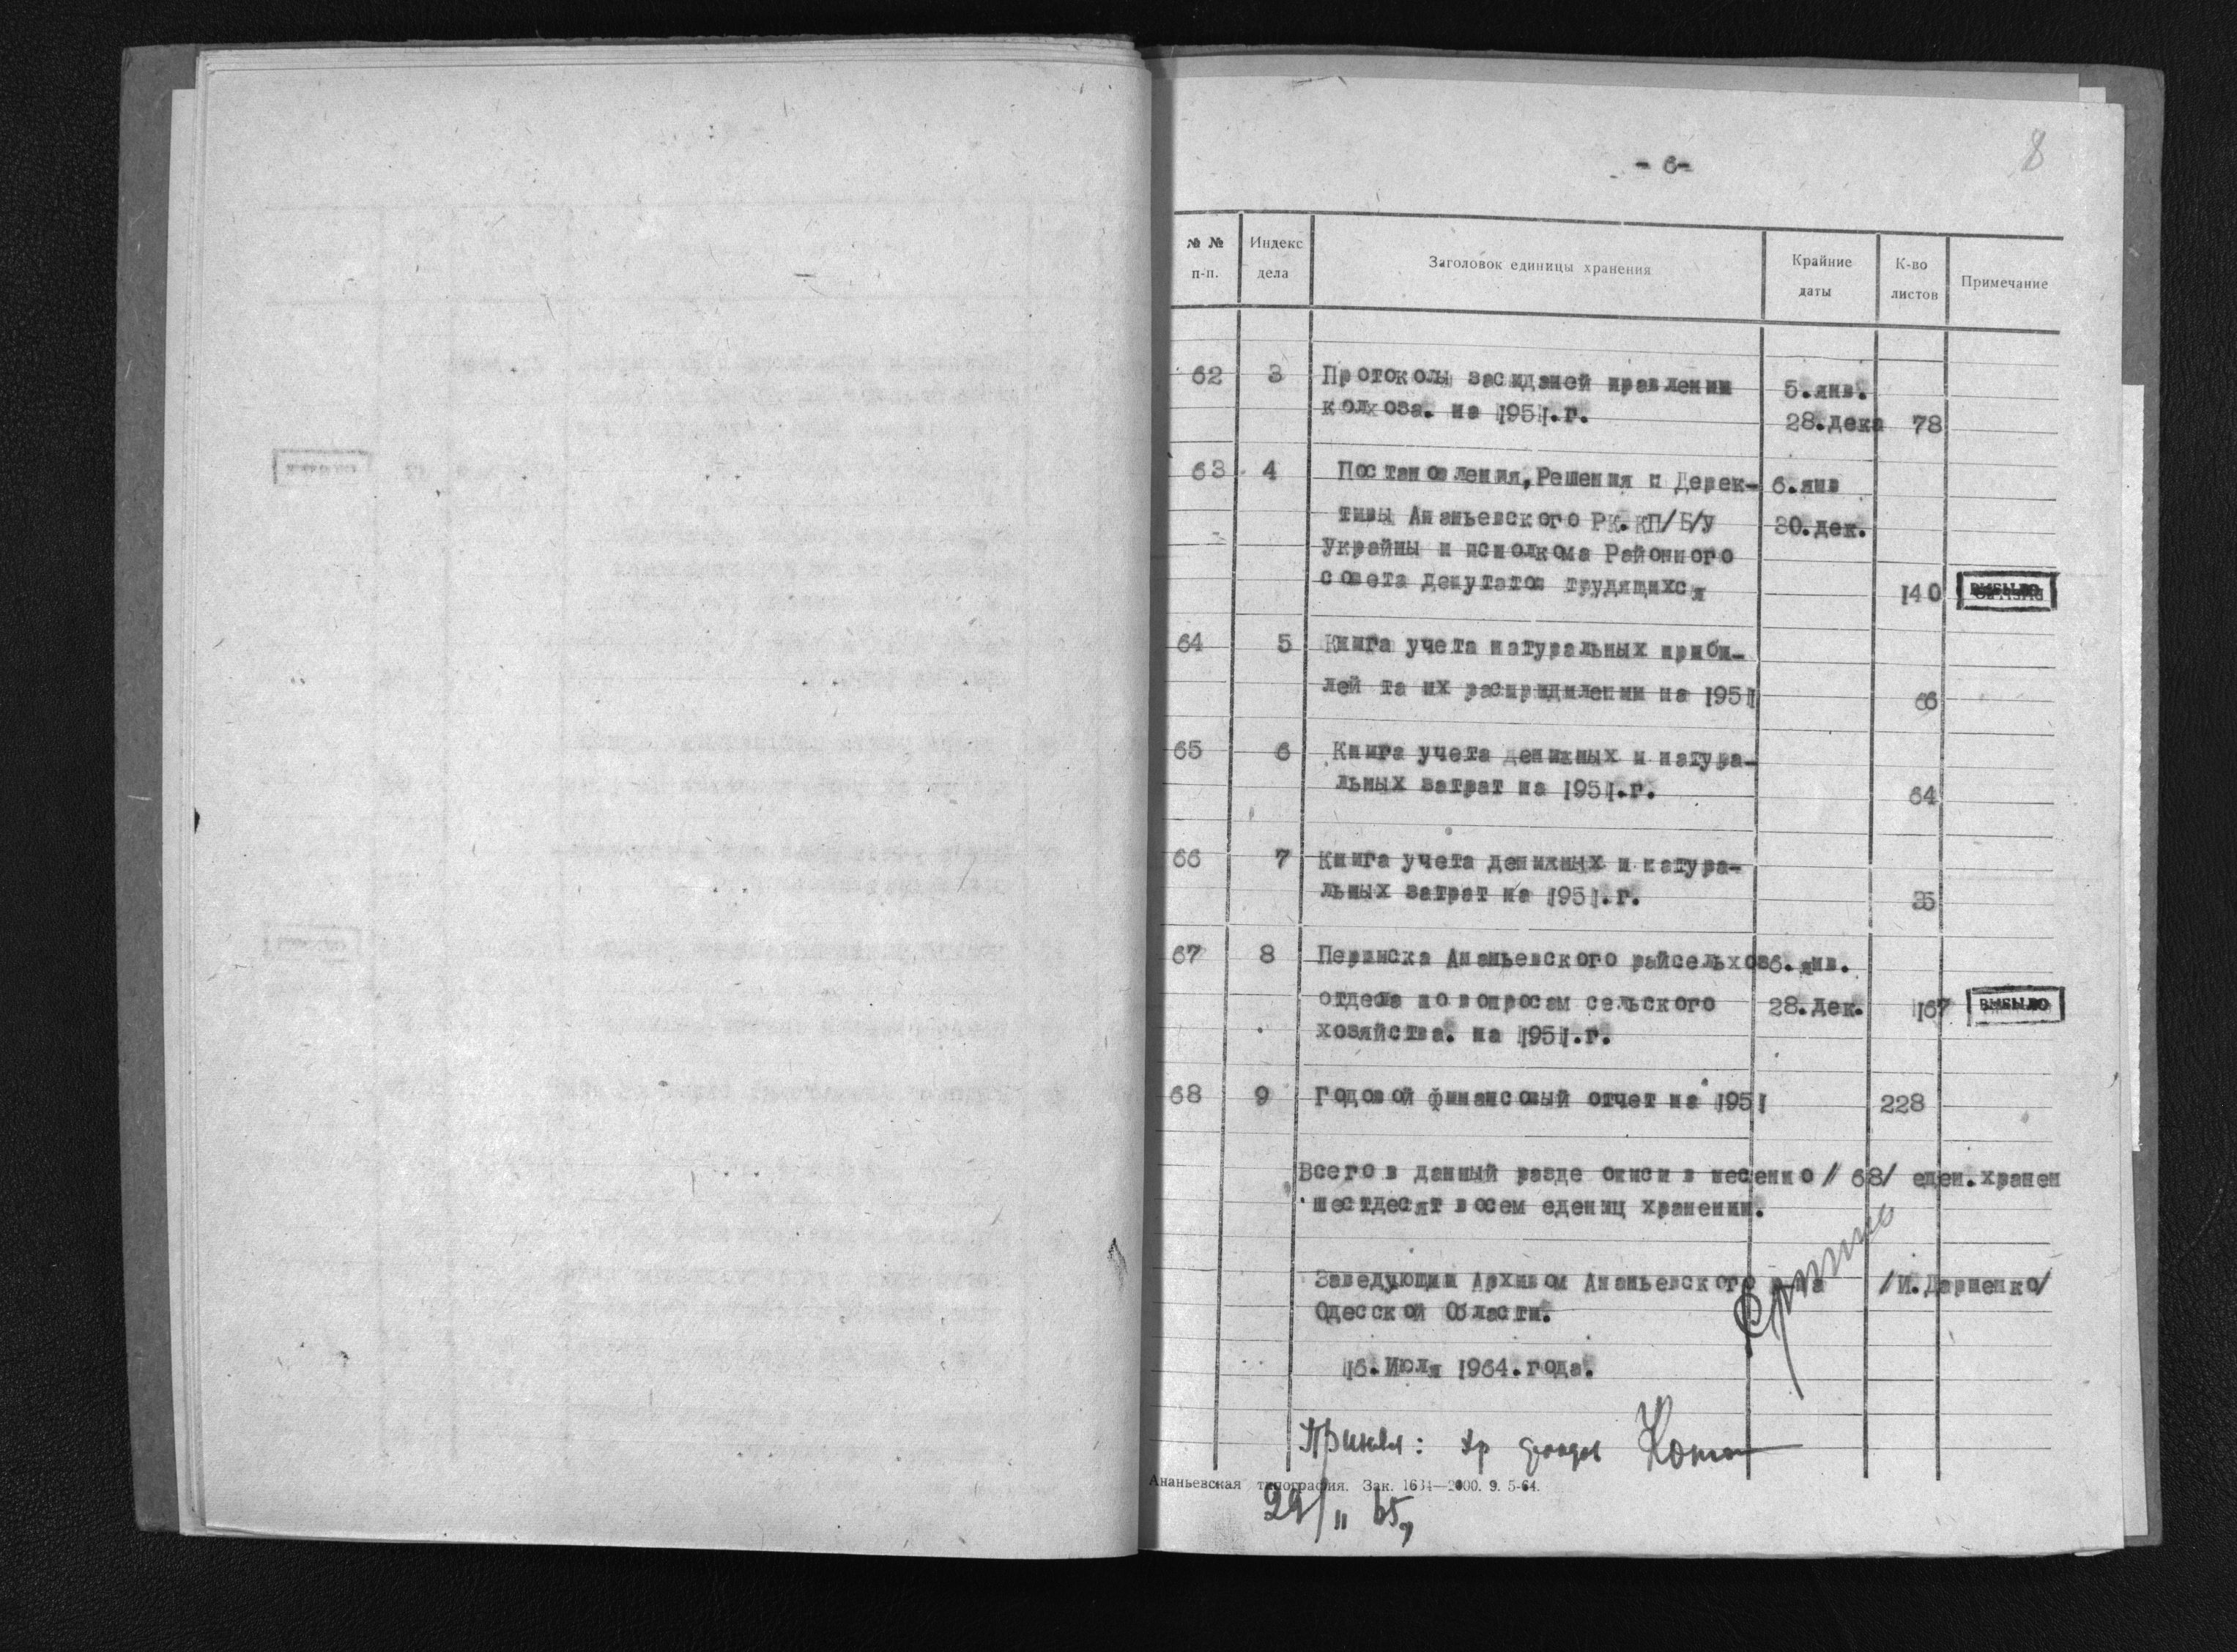 8
- 6-
№ № п-п. Индекс дела Заголовок единицы хранения Крайние даты К-во листов Примечание
62 3 Протоколы засиданей правлении 5.янв.
колхоза. на 1951.г. 28.дека 78
63 4 Постановления,Решения и Дерек- 6.янв
тивы Ананьевского РК.КП/Б/У 30.дек.
Украйны и исполкома Районного
совета депутатов трудящихся 140 ВЫБЫЛО
64 5 Книга учета натуральных приби-
лей та их расприидилении на 1951 66
65 6 Книга учета денижных и натура-
льных затрат на 1951.г. 64
66 7 Книга учета денижных и натура-
льных затрат на 1951.г. 35
67 8 Периписка Ананьевского райсельхоз 6.янв.
отдела по вопросам сельского 28.дек. 167 ВЫБЫЛО
хозяйства. на 1951.г.
68 9 Годовой финансовый отчет на 1951 228
Всего в данный разде описи в несенно // 68/ еден.хранен
шестдесят восем едениц хранении.
Заведующии Архивом Ананьевского /И.Дарненко/
Одесской Области.
16.Июля 1964.года.
Принял:
Ананьевская типография. Зак. 1634—2000. 9. 5-64.
29/II 65